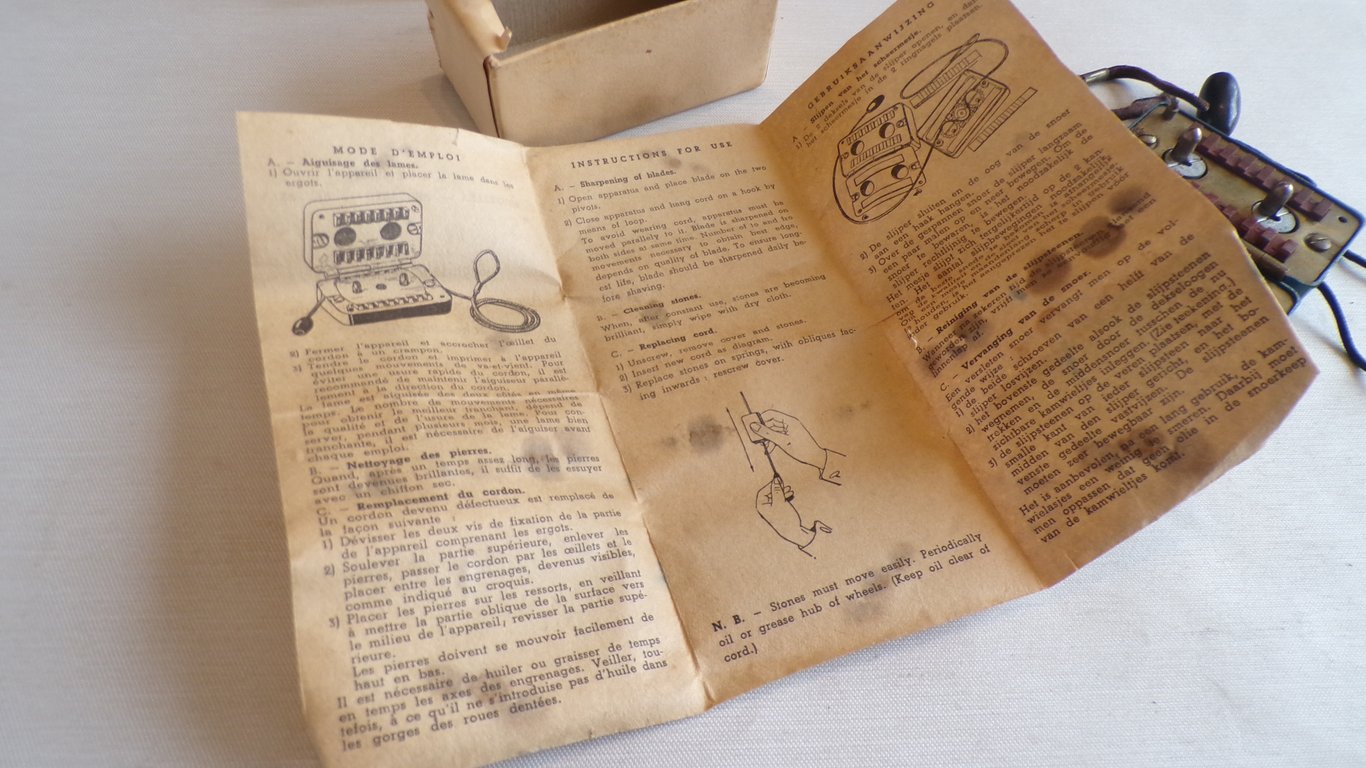 MODE D'EMPLOI
A. — Aiguisage des lames.
1) Ouvrir l'appareil et placer la lame dans les
ergots.
2) Fermer l'appareil et accrocher l'œillet du
cordon à un crampon.
3) Tendre le cordon et imprimer à l'appareil
quelques mouvements de va-et-vient. Pour
éviter une usure rapide du cordon, il est
recommandé de maintenir l'aiguiseur parallè-
lement à la direction du cordon.
La lame est aiguisée des deux côtés en même
temps. Le nombre de mouvements nécessaires
pour obtenir le meilleur tranchant, dépend de
la qualité et de l'usure de la lame. Pour con-
server, pendant plusieurs mois, une lame bien
tranchante, il est nécessaire de l'aiguiser avant
chaque emploi.
B. — Nettoyage des pierres.
Quand, après un temps assez long, les pierres
sont devenues brillantes, il suffit de les essuyer
avec un chiffon sec.
C. — Remplacement du cordon.
Un cordon devenu défectueux est remplacé de
la façon suivante :
1) Dévisser les deux vis de fixation de la partie
de l'appareil comprenant les ergots.
2) Soulever la partie supérieure, enlever les
pierres, passer le cordon par les œillets et le
placer entre les engrenages, devenus visibles,
comme indiqué au croquis.
3) Placer les pierres sur les ressorts, en veillant
à mettre la partie oblique de la surface vers
le milieu de l'appareil; revisser la partie supé-
rieure.
Les pierres doivent se mouvoir facilement de
haut en bas.
Il est nécessaire de huiler ou graisser de temps
en temps les axes des engrenages. Veiller, tou-
tefois, à ce qu'il ne s'introduise pas d'huile dans
les gorges des roues dentées.
INSTRUCTIONS FOR USE
A. — Sharpening of blades.
1) Open apparatus and place blade on the two
pivots.
2) Close apparatus and hang cord on a hook by
means of loop.
To avoid wearing cord, apparatus must be
moved parallely to it. Blade is sharpened on
both sides at same time. Number of to and fro
movements necessary to obtain best edge,
depends on quality of blade. To ensure long-
est life, blade should be sharpened daily be-
fore shaving.
B. — Cleaning stones.
When, after constant use, stones are becoming
brilliant, simply wipe with dry cloth.
C. — Replacing cord.
1) Unscrew, remove cover and stones.
2) Insert new cord as diagram.
3) Replace stones on springs, with obliques fac-
ing inwards : rescrew cover.
N. B. — Stones must move easily. Periodically
oil or grease hub of wheels. (Keep oil clear of
cord.)
GEBRUIKSAANWIJZING
A. — Slijpen van het scheermesje.
1) De 2 deksels van de slijper openen, en dan
het scheermesje in de 2 ringnagels plaatsen.
2) De slijper sluiten en de oog van de snoer
aan een haak hangen.
3) Over de gespannen snoer de slijper langzaam
een paar malen op en neer bewegen. Om de
snoer te
Het mesje slijpt
Het aantal slijpbewegingen is afhankelijk
B. — Reiniging van de slijpsteenen.
C. — Vervanging van de snoer.
Een versleten snoer vervangt men op de vol-
gende wijze :
1) de beide schroeven van een helft van de
slijper losvijzen.
2) het bovenste gedeelte alsook de slijpsteenen
wegnemen, de snoer door de dekseloogen
trekken en de middensnoer tusschen de nu
zichtbare kamwieltjes inleggen. (Zie teekening.)
3) de slijpsteenen op de veeren plaatsen met het
smalle kant van ieder slijpsteen naar het
midden van den slijper gericht, en het bo-
venste gedeelte vastvijzen. De slijpsteenen
moeten zeer bewegbaar zijn.
Het is aanbevolen, na een lang gebruik, de kam-
wielasjes een weinig te smeren. Daarbij moet
men oppassen dat geen olie in de snoerkeep
van de kamwieltjes komt.